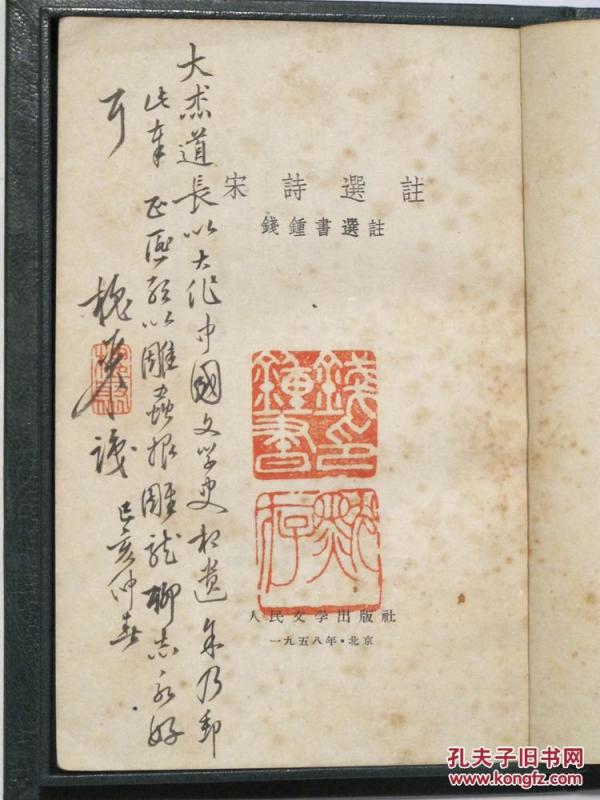 宋詩選註
錢鍾書選註
大杰道長以大作中國文学史相遺余乃郵
此奉 正匪敢以雕蟲報雕龍聊志永好
耳 槐聚識 己亥仲春
錢鍾書印
默存
人民文学出版社
一九五八年·北京
孔夫子旧书网
www.kongfz.com